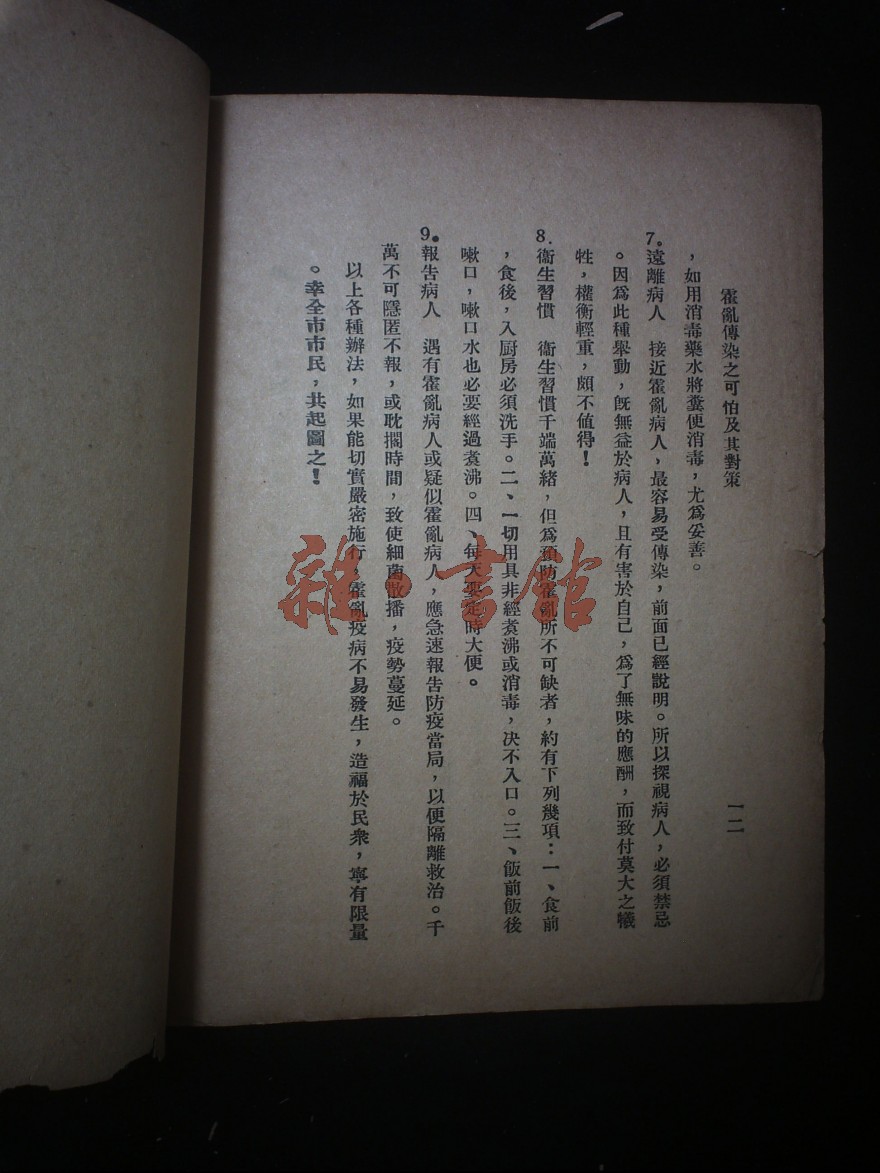 霍亂傳染之可怕及其對策
一二
，如用消毒藥水將糞便消毒，尤爲妥善。
7。遠離病人　接近霍亂病人，最容易受傳染，前面已經說明。所以探視病人，必須禁忌
。因爲此種舉動，旣無益於病人，且有害於自己，爲了無味的應酬，而致付莫大之犧
牲，權衡輕重，頗不値得！
8.衞生習慣　衞生習慣千端萬緒，但爲預防霍亂所不可缺者，約有下列幾項：一、食前
，食後，入厨房必須洗手。二、一切用具非經煑沸或消毒，决不入口。三、飯前飯後
嗽口，嗽口水也必要經過煑沸。四、每天要定時大便。
9。報告病人　遇有霍亂病人或疑似霍亂病人，應急速報告防疫當局，以便隔離救治。千
萬不可隱匿不報，或耽擱時間，致使細菌散播，疫勢蔓延。
以上各種辦法，如果能切實嚴密施行，霍亂疫病不易發生，造福於民衆，寧有限量
。幸全市市民，共起圖之！
雜·書館